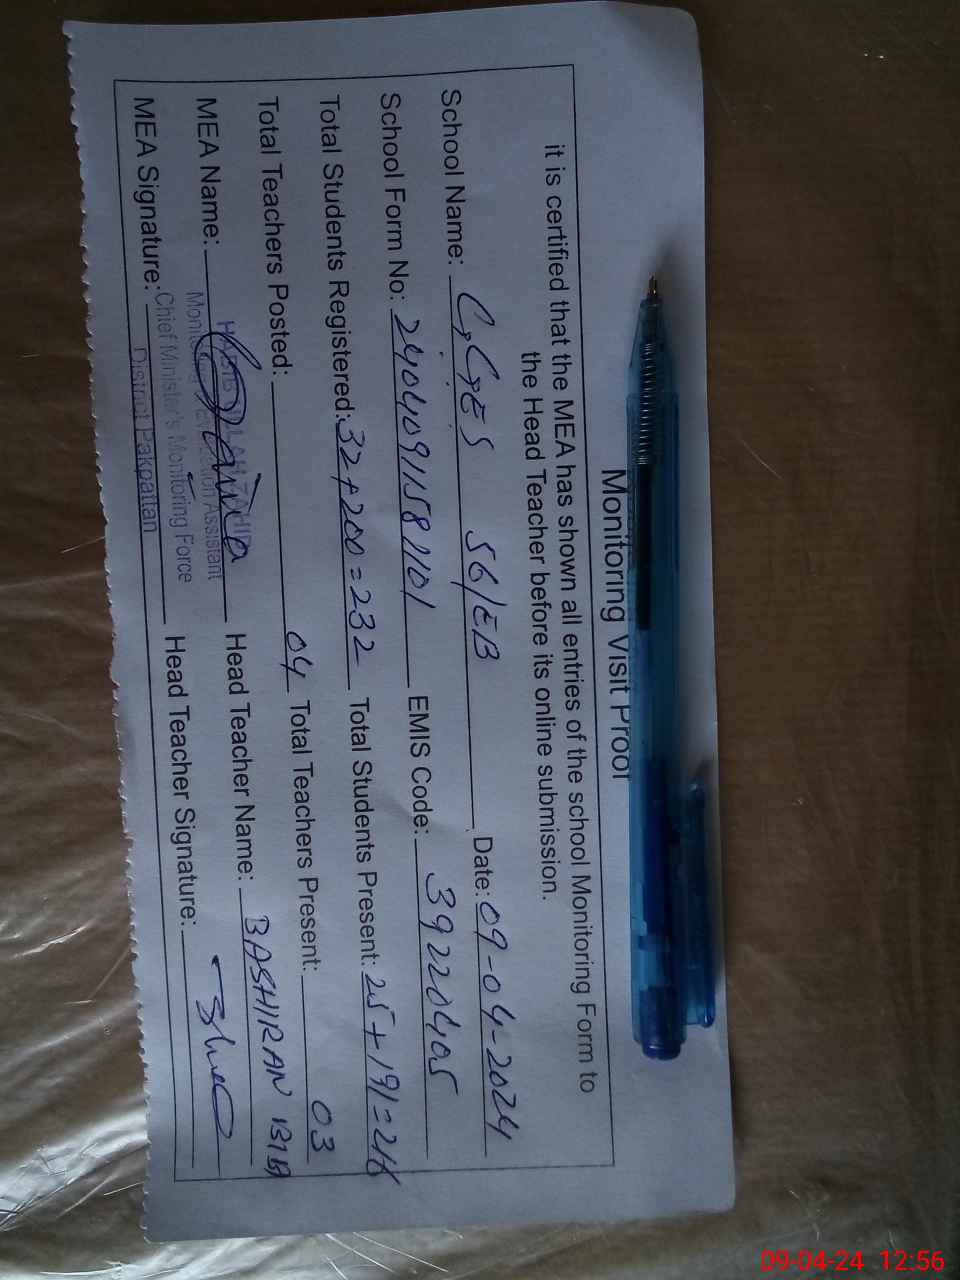 Monitoring Visit Proof
it is certified that the MEA has shown all entries of the school Monitoring Form to
the Head Teacher before its online submission.
School Name: GGES 56/EB Date: 09-04-2024
School Form No: 2404091581101 EMIS Code: 39220405
Total Students Registered: 32+200=232 Total Students Present: 25+191=216
Total Teachers Posted: 04 Total Teachers Present: 03
MEA Name: Head Teacher Name: BASHIRAN BIBI
MEA Signature: Head Teacher Signature:
Assistant
Chief Minister's Monitoring Force
District Pakpattan
09-04-24 12:56